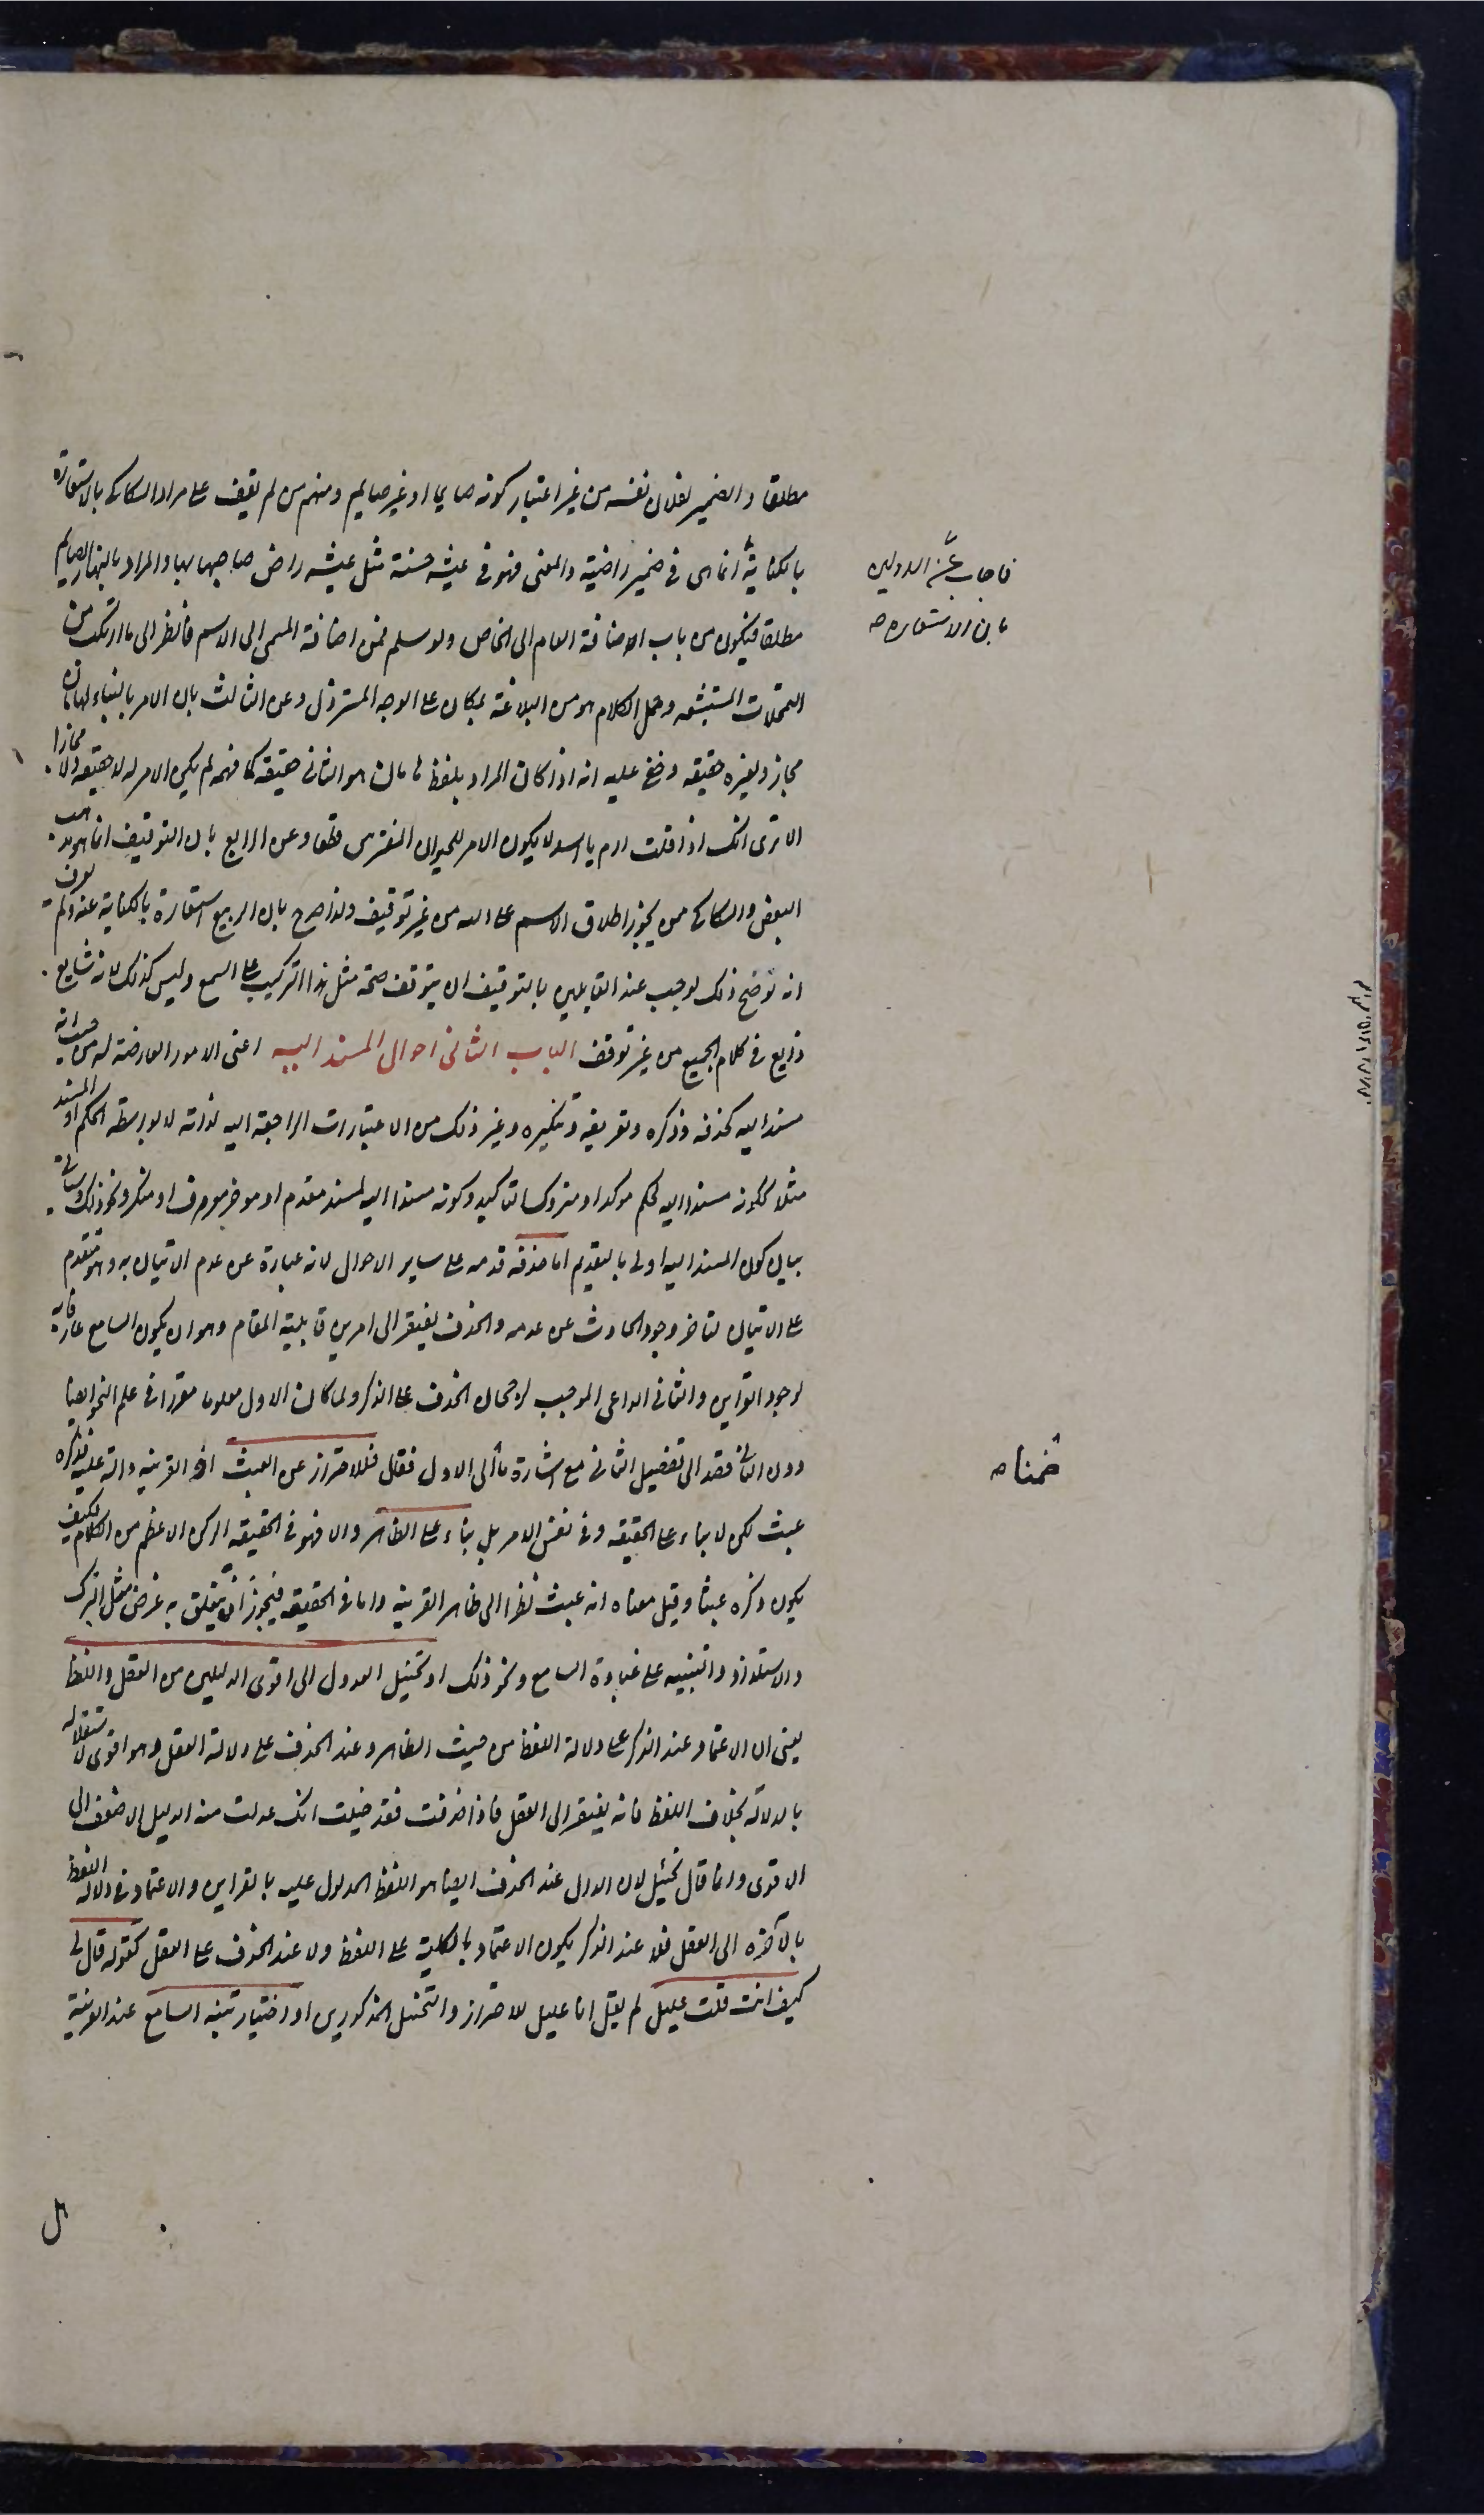 مطلقا والضمير لفلان نفسه من غير اعتبار كونه صايما او غير صايم ومنهم من لم يقف على مراد السكاكى بالاستعارة
بالكناية انما هى فى ضمير راضية والمعنى فهو فى عيشة حسنة مثل عيشة راض صاحبها بها والمراد بالنهار الصايم
مطلقا فيكون من باب اضافة العام الى الخاص ولو سلم فمن اضافة المسمى الى الاسم فانظر الى ما ارتكب من
التمحلات المستبشعه وحمل الكلام هو من البلاغة بمكان على الوجه المسترذل وعن الثالث بان الامر بالبناء لهامان
مجاز ولغيره حقيقه وخفى عليه انه اذا كان المراد بلفظ هامان هو البانى حقيقة كما فهمه لم يكن الامر له لا حقيقه ولا مجازا
الا ترى انك اذا قلت ارم يا اسد لا يكون الامر للحيوان المفترس قطعا وعن الرابع بان التوقيف انما هو مذهب
البعض والسكاكى ممن يجوز اطلاق الاسم على الله من غير توقيف ولذا صرح بان الربيع استعارة بالكناية عنه ولم يعرف
انه لو صح ذلك لوجب عند القايلين بالتوقيف ان يتوقف صحة مثل هذا التركيب على السمع وليس كذلك لانه شايع
ذايع فى كلام الجميع من غير توقف الباب الثانى احوال المسند اليه اعنى الامور العارضة له من حيث انه
مسند اليه كحذفه وذكره وتعريفه وتنكيره وغير ذلك من الاعتبارات الراجعة اليه لذاته لا بواسطة الحكم او المسند
مثلا ككونه مسندا اليه لحكم موكد او متروك التاكيد وكونه مسندا اليه لمسند مقدم او موخر معرف او منكر ونحو ذلك وسياتى
بيان كون المسند اليه اولى بالتقديم اما حذفه قدمه على ساير الاحوال لانه عبارة عن عدم الاتيان به وهو متقدم
على الاتيان لتاخر وجود الحادث عن عدمه والحذف يفتقر الى امرين قابلية المقام وهو ان يكون السامع عارفا به
لوجود القراين والثانى الداعى الموجب لرجحان الحذف على الذكر ولما كان الاول معلوما مقررا فى علم النحو ايضا
دون الثانى قصد الى تفصيل الثانى مع اشارة ما الى الاول فقال فللاحتراز عن العبث اذ القرينه دالة عليه فذكره
عبث لكن لا بناء على الحقيقه وفى نفس الامر بل بناء على الظاهر والا فهو فى الحقيقه الركن الاعظم من الكلام فكيف
يكون ذكره عبثا وقيل معناه انه عبث نظرا الى ظاهر القرينه واما فى الحقيقه فيجوز ان يتعلق به غرض مثل التبرك
والاستلذاذ والتنبيه على غباوة السامع ونحو ذلك او تخييل العدول الى اقوى الدليلين من العقل واللفظ
يعنى ان الاعتماد عند الذكر على دلالة اللفظ من حيث الظاهر وعند الحذف على دلالة العقل وهو اقوى لاستقلاله
بالدلالة بخلاف اللفظ فانه يفتقر الى العقل فاذا حذفت فقد خيلت انك عدلت منه الدليل الاضعف الى
الاقوى وانما قال تخييل لان الدال عند الحذف ايضا هو اللفظ المدلول عليه بالقراين والاعتماد فى دلالة اللفظ
بالآخره الى العقل فلا عند الذكر يكون الاعتماد بالكلية على اللفظ ولا عند الحذف على العقل كقوله قال لى
كيف انت قلت عليل لم يقل انا عليل للاحتراز والتخييل المذكورين او اختيار تنبه السامع عند القرينة
فاجاب عن الاولين
بان الاستعاره ص
ضمنا ص